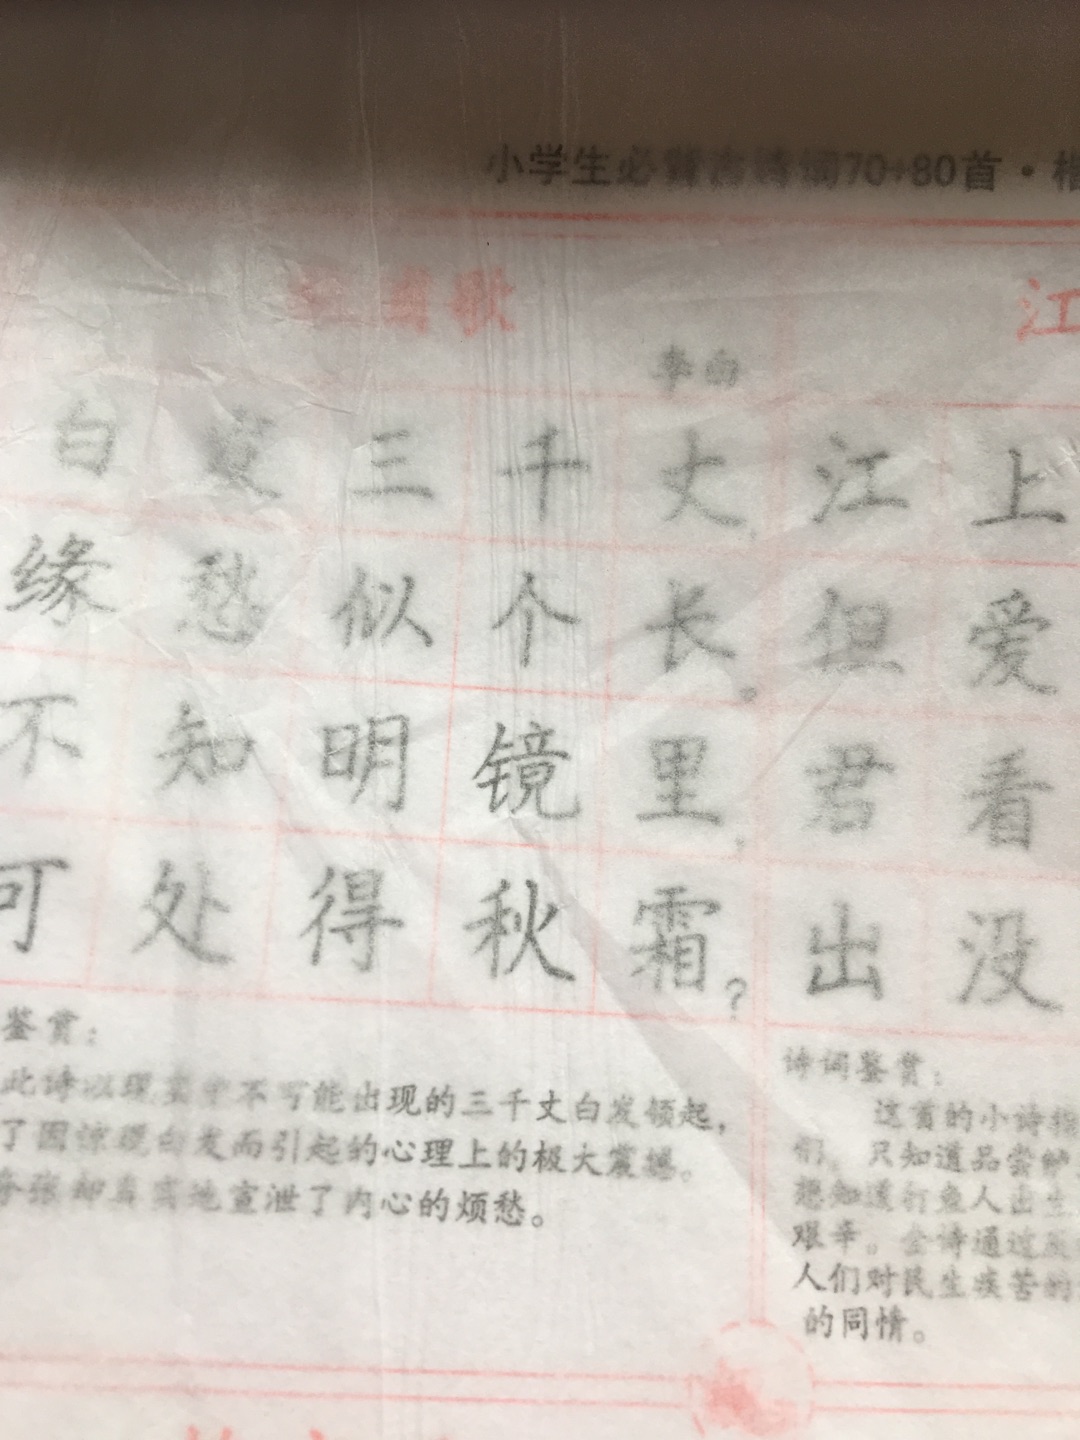 小学生必背古诗词70+80首·楷
秋浦歌
李白
白发三千丈
缘愁似个长。
不知明镜里
可处得秋霜？
鉴赏：
此诗以现实中不可能出现的三千丈白发领起，
了因惊现白发而引起的心理上的极大震撼。
夸张却真实地宣泄了内心的烦愁。
江
江上
但爱
君看
出没
诗词鉴赏：
这首的小诗指
们，只知道品尝鲈
想知道打鱼人出生
艰辛。全诗通过反
人们对民生疾苦的
的同情。